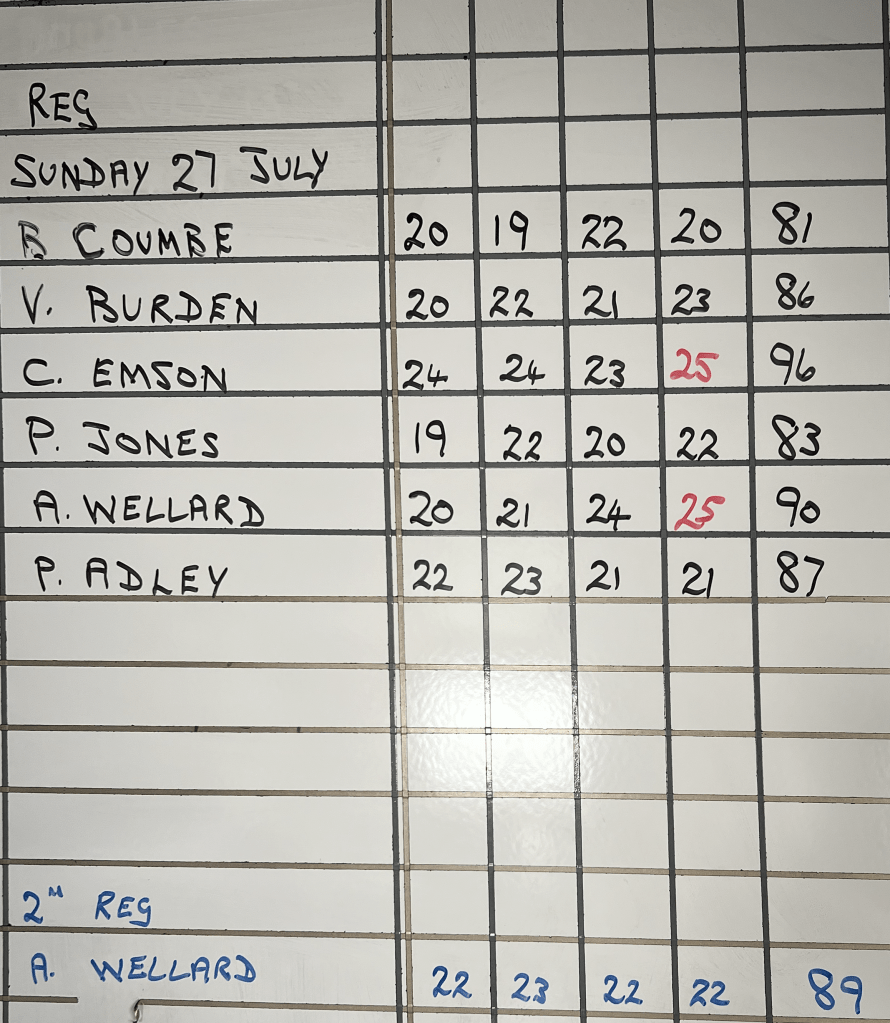 REG
SUNDAY 27 JULY
B COUMBE 20 19 22 20 81
V. BURDEN 20 22 21 23 86
C. EMSON 24 24 23 25 96
P. JONES 19 22 20 22 83
A. WELLARD 20 21 24 25 90
P. ADLEY 22 23 21 21 87
2ND REG
A. WELLARD 22 23 22 22 89